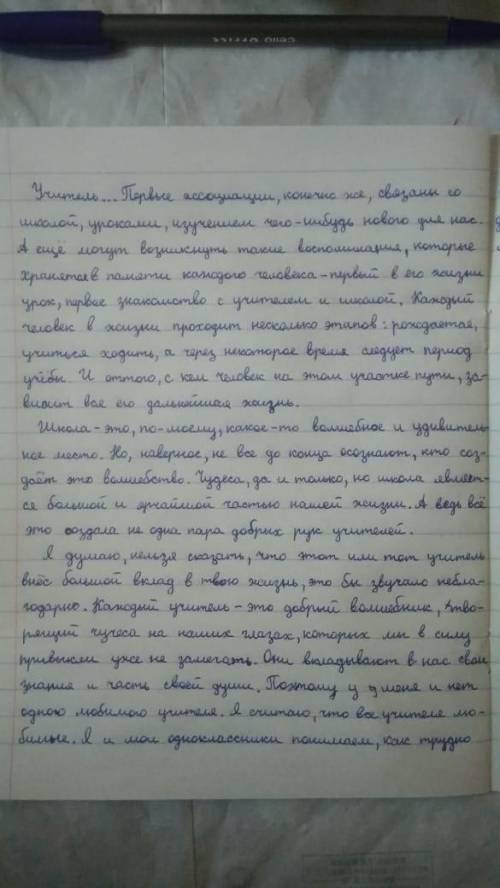 Учитель... Первые ассоциации, конечно же, связаны со
школой, уроками, изучением чего-нибудь нового для нас.
А ещё могут возникнуть такие воспоминания, которые
хранятся в памяти каждого человека - первый в его жизни
урок, первое знакомство с учителем и школой. Каждый
человек в жизни проходит несколько этапов: рождается,
учиться ходить, а через некоторое время следует период
учёбы. И оттого, с кем человек на этом участке пути, за-
висит вся его дальнейшая жизнь.
Школа - это, по-моему, какое-то волшебное и удивитель
ное место. Но, наверное, не все до конца осознают, кто соз-
даёт это волшебство. Чудеса, да и только, но школа являет-
ся большой и ярчайшей частью нашей жизни. А ведь всё
это создала не одна пара добрых рук учителей.
Я думаю, нельзя сказать, что этот или тот учитель
внёс большой вклад в твою жизнь, это бы звучало небла-
годарно. Каждый учитель - это добрый волшебник, тво-
рящий чудеса на наших глазах, которых мы в силу
привыкли уже не замечать. Они вкладывают в нас свои
знания и часть своей души. Поэтому у меня и нет
одного любимого учителя. Я считаю, что все учителя лю-
бимые. Я и мои одноклассники понимаем, как трудно